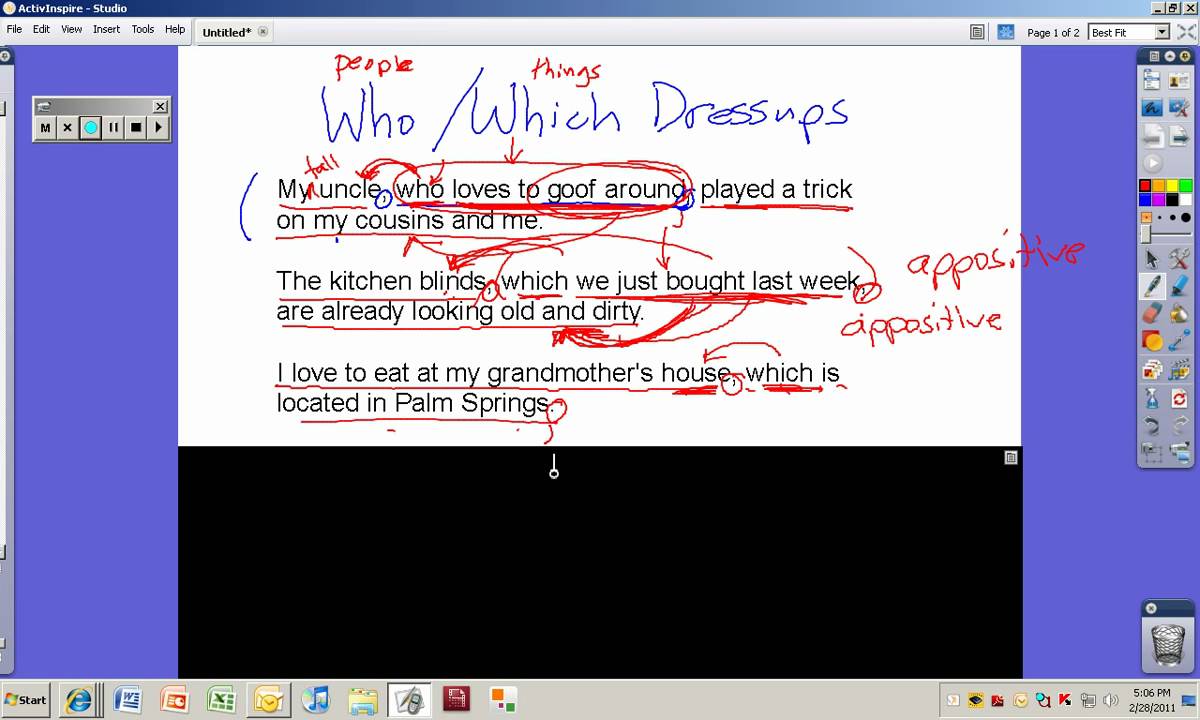 ActivInspire - Studio
File Edit View Insert Tools Help
Untitled*
Page 1 of 2
Best Fit
M
people things
Who / Which Dressups
tall
My uncle, who loves to goof around, played a trick
on my cousins and me.
The kitchen blinds, which we just bought last week,
are already looking old and dirty.
appositive
appositive
I love to eat at my grandmother's house, which is
located in Palm Springs.
Start
5:06 PM
2/28/2011